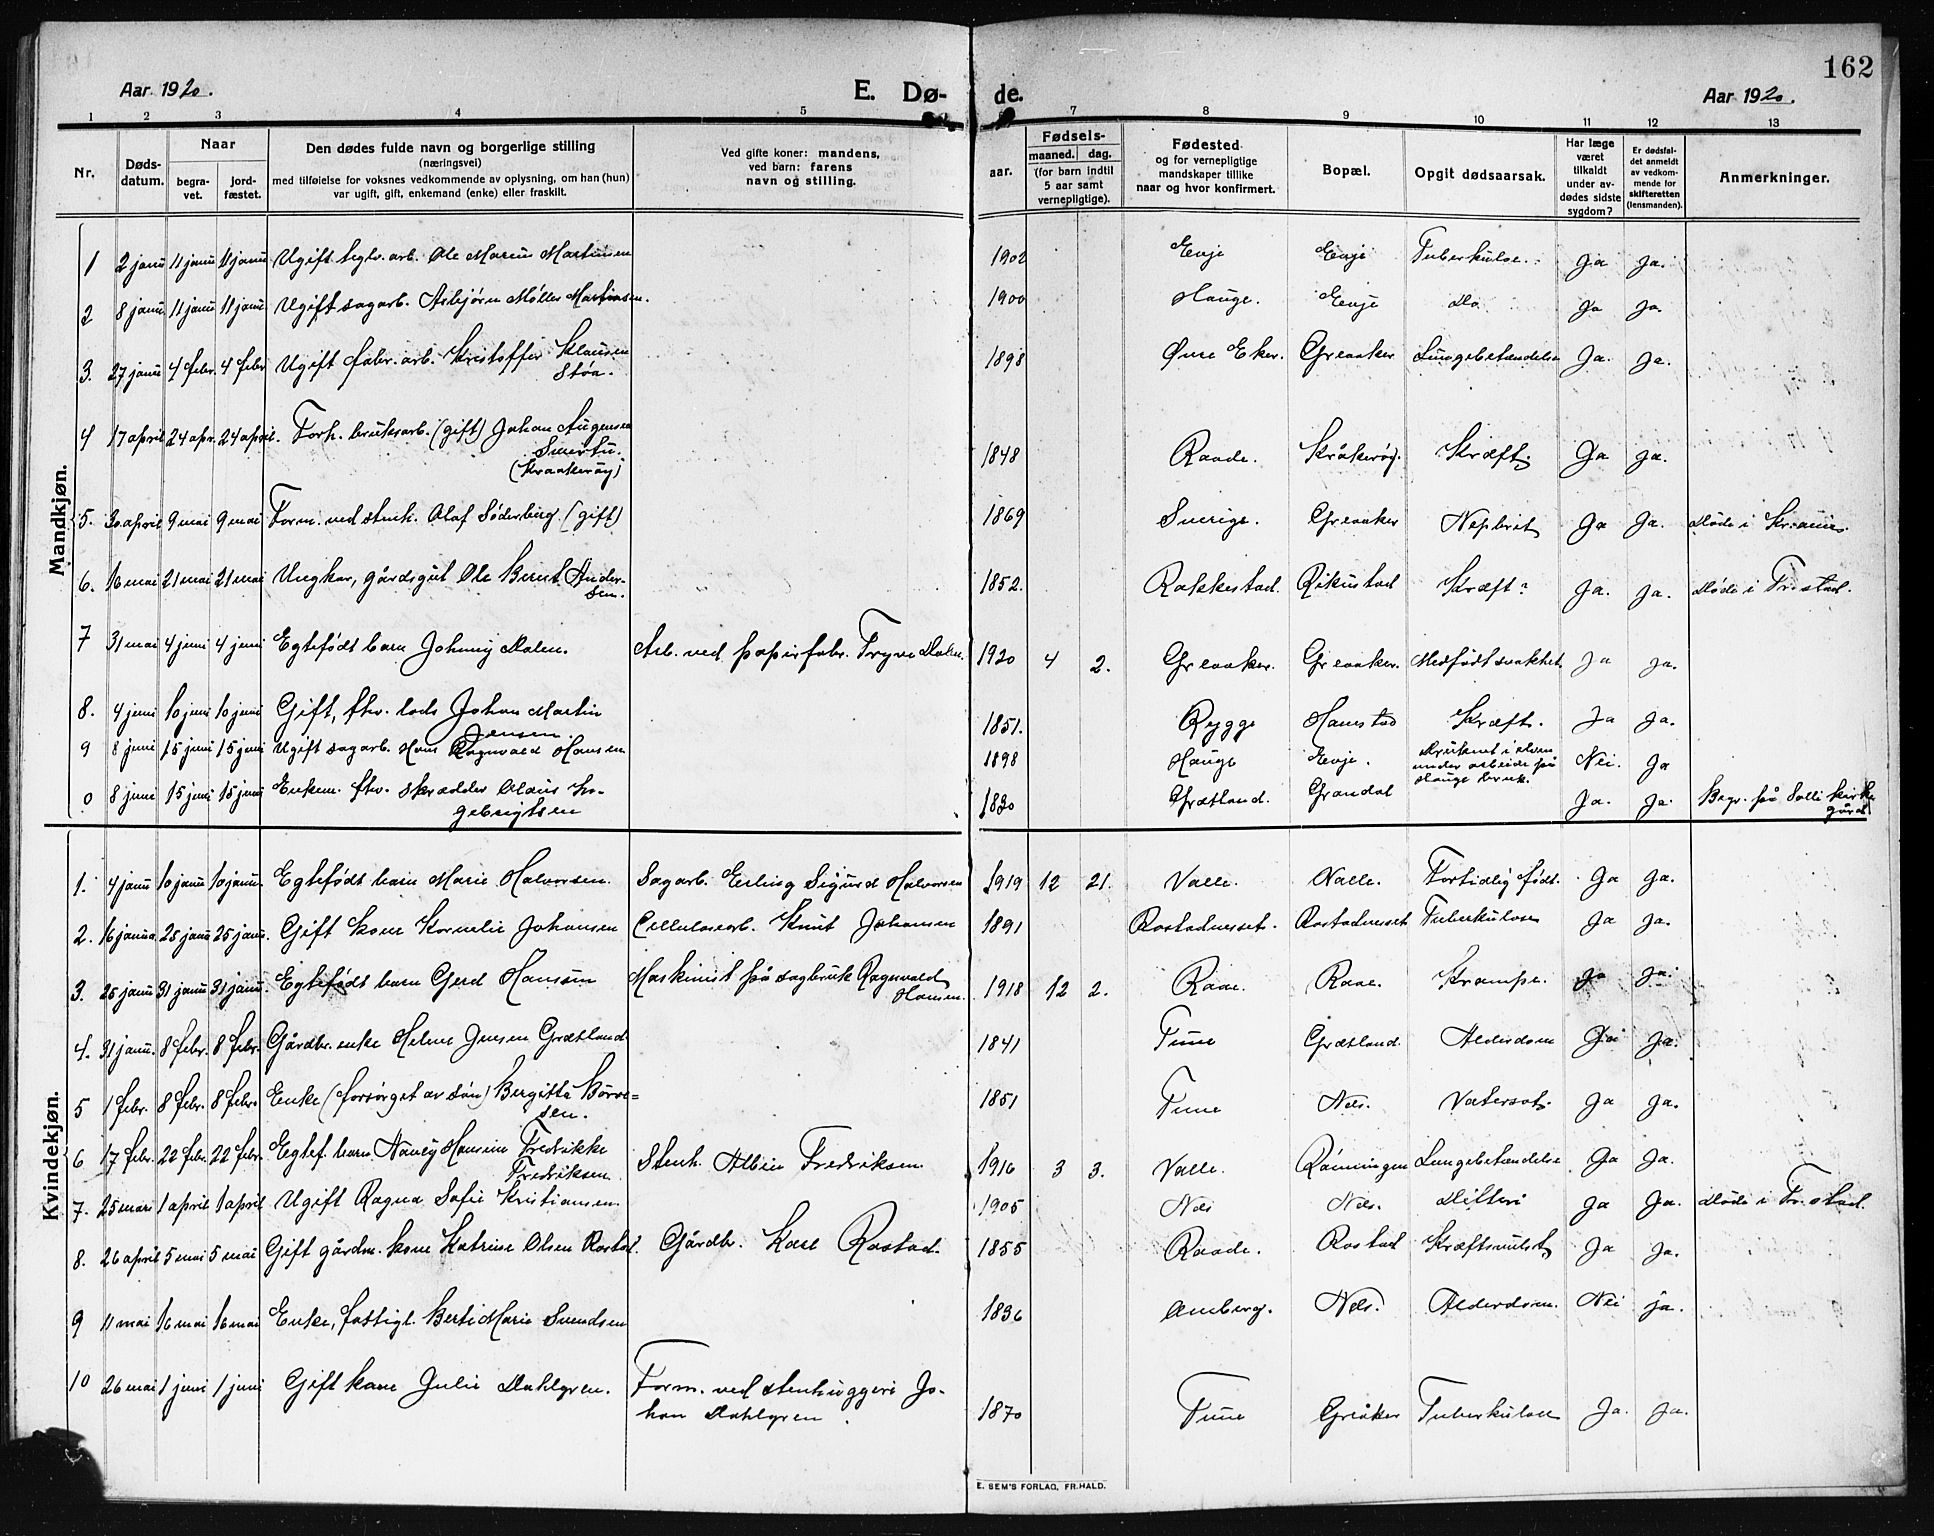 162
Aar 1920. E. Dø- de. Aar 1920.
1 2 3 4 5 7 8 9 10 11 12 13
Nr.
Døds-
datum.
Naar
begra-
vet.
jord-
fæstet.
Den dødes fulde navn og borgerlige stilling
(næringsvei)
med tilføielse for voksnes vedkommende av oplysning, om han (hun)
var ugift, gift, enkemand (enke) eller fraskilt.
Ved gifte koner: mandens,
ved barn: farens
navn og stilling.
aar.
Fødsels-
maaned. dag.
(for barn indtil
5 aar samt
vernepligtige).
Fødested
og for vernepligtige
mandskaper tillike
naar og hvor konfirmert.
Bopæl.
Opgit dødsaarsak.
Har læge
været
tilkaldt
under av-
dødes sidste
sygdom?
Er dødsfal-
det anmeldt
av vedkom-
mende for
skifteretten
(lensmanden).
Anmerkninger.
Mandkjøn.
1 2 janu 11 janu 11 janu Ugift teglv. arb. Ole Marius Martinsen 1902 Evje Evje Tuberkulose. Ja Ja.
2 8 janu 11 janu 11 janu Ugift sagarb. Asbjørn Møller Martinsen. 1900 Hauge. Evje Do Ja Ja.
3. 27 janu 4 febr. 4 febr Ugift fabr. arb. Kristoffer Klausen
Støa. 1898 Øvre Eker. Greaaker Lungebetændelse Ja. Ja.
4 17 april 24 apr. 24 april. Forh. bruksarb. (gift) Johan
(Kraakerøy) 1848 Raade. Kråkerøy. Kræft. Ja Ja.
5. 30 april 9 mai 9 mai Form. ved stenh. Olaf Söderberg (gift) 1869 Sverige. Greaaker Nefrit Ja Ja. Döde i
6. 16 mai 21 mai 21 mai Ungkar, gårdsgut Ole Bernt Ander-
sen. 1852. Rakkestad. Rikustad Kræft? Ja. Ja. Döde i Fr.stad.
7 31 mai 4 juni 4 juni Egtefödt barn Johnny Dalen. Arb. ved papirfabr. Trygve Dalen. 1920 4 2. Greaaker. Greaaker. Medfödt svakhet. Ja Ja.
8. 4 juni 10 juni 10 juni Gift, fhv. lods Johan Martin
Jensen. 1851. Rygge Hanestad Kræft. Ja Ja.
9 8 juni 15 juni 15 juni Ugift sagarb. Hans Ragnvald Hansen 1898 Hauge Evje. Druknet i elven
under arbeide på
Hauge bruk. Nei. Ja
0 8 juni 15 juni 15 juni Enkem. fhv. skrædder Olaus In-
gebrigtsen 1830 Grætland. Grøndal Ja. Ja. Begr. på Solli kirke
gård
Kvindekjøn.
1. 4 janu 10 janu 10 janu. Egtefödt barn Marie Halvorsen. Sagarb. Erling Sigurd Halvorsen 1919 12 21. Valle. Valle. Fortidlig födt. Ja Ja.
2. 16 janua 25 janu 25 janu. Gift kone Kornelie Johansen Cellulosearb. Knut Johansen 1891 Rostadnesset. Rostadnesset Tuberkulose Ja Ja.
3. 25 janu 31 janu 31 janu. Egtefödt barn Gerd Hansen Maskinist på sagbruk Ragnvald
Hansen. 1918 12 2. Raae. Raae. Krampe. Ja Ja.
4. 31 janu. 8 febr. 8 febr. Gårdbr. enke Helene Jensen Grætland 1841 Tune Grætland. Alderdom Ja Ja.
5 1 febr. 8 febr. 8 febr. Enke (forsörget av sön) Bergitta Börre-
sen. 1851 Tune Nes. Vatersot. Ja Ja.
6 17 febr. 22 febr. 22 febr. Egtef. barn Nancy Hansine Fredrikke
Fredriksen. Stenh. Albin Fredriksen 1916 3 3. Valle. Rönningen Lungebetændelse Ja Ja.
7. 25 mars 1 april 1 april Ugift Ragna Sofie Kristiansen 1905 Nes Nes. Difteri Ja Ja. Döde i Fr.stad.
8. 26 april 5 mai 5 mai Gift gårdm. kone Katrine Olsen Rostad. Gårdbr. Kare Rostad. 1855 Raade. Rostad Kræftsvulst Ja Ja.
9 11 mai 16 mai 16 mai Enke, fattigl. Berte Marie Svendsen 1836 Amberg. Nes. Alderdom. Nei ja.
10 26 mai 1 juni 1 juni Gift kone Julie Dahlgren. Form. ved stenhuggeri Jo-
han Dahlgren 1870 Tune Greåker Tuberkulose Ja. Ja.
E. SEM'S FORLAG, FR.HALD.